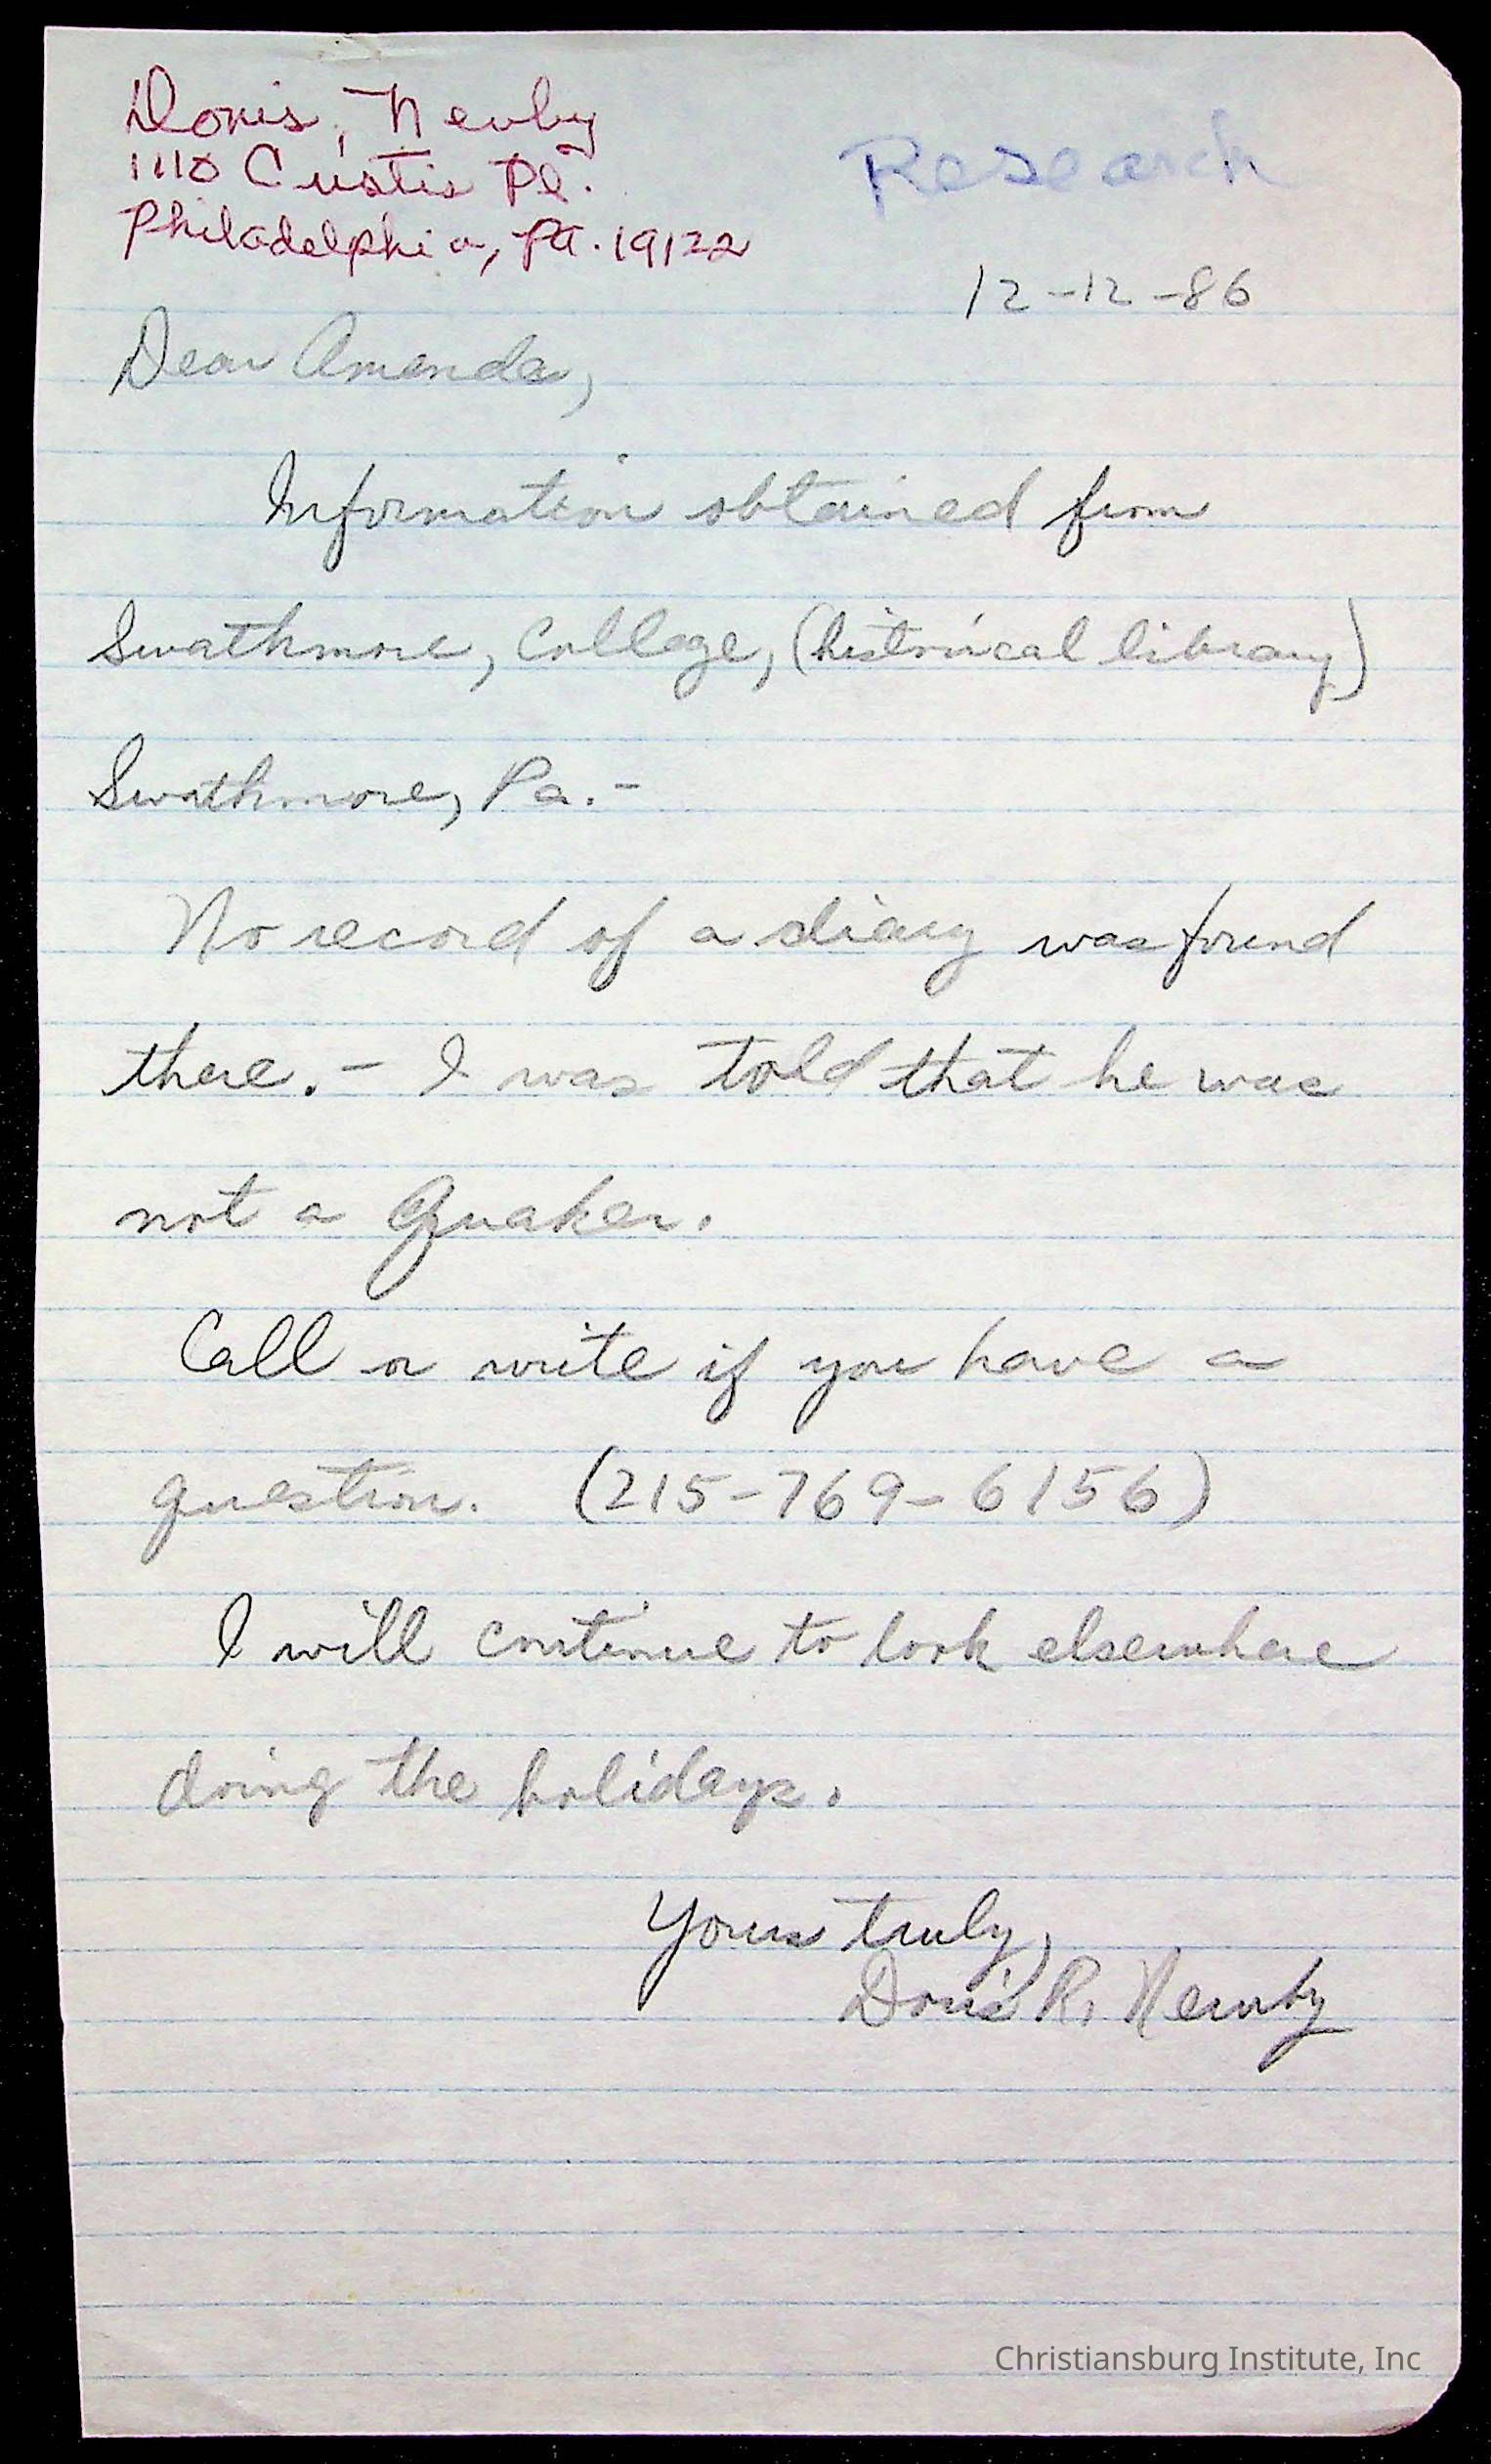 Doris, Newby
1110 Custis Pl.
Philadelphia, Pa. 19122
Research
12-12-86
Dear Amanda,
Information obtained from
Swathmore, College, (historical library)
Swathmore, Pa.-
No record of a diary was found
there.- I was told that he was
not a Quaker.
Call or write if you have a
question. (215-769-6156)
I will continue to look elsewhere
doing the holidays.
Yours truly,
Doris R. Newby
Christiansburg Institute, Inc